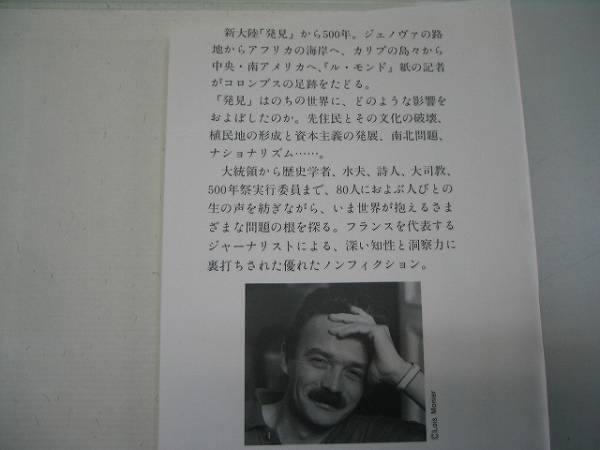 新大陸「発見」から500年。ジェノヴァの路
地からアフリカの海岸へ、カリブの島々から
中央・南アメリカへ、『ル・モンド』紙の記者
がコロンブスの足跡をたどる。
「発見」はのちの世界に、どのような影響を
およぼしたのか。先住民とその文化の破壊、
植民地の形成と資本主義の発展、南北問題、
ナショナリズム……。
大統領から歴史学者、水夫、詩人、大司教、
500年祭実行委員まで、80人におよぶ人びとの
生の声を紡ぎながら、いま世界が抱えるさま
ざまな問題の根を探る。フランスを代表する
ジャーナリストによる、深い知性と洞察力に
裏打ちされた優れたノンフィクション。
©Loïs Monier